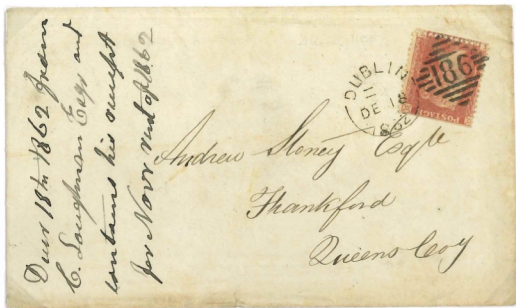 Dub 18th 1862 from
C. Loughnan Esqr and
contains his receipt
for Novr rent of 1862
DUBLIN
11
DE 18
1862
186
POSTAGE
Andrew Stoney Esqre
Frankford
Queens Coy